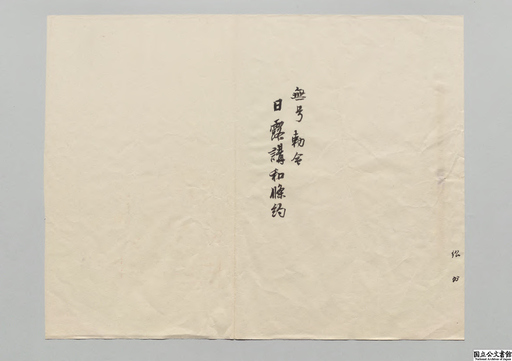 無号勅令
日露講和條約
国立公文書館
National Archives of Japan